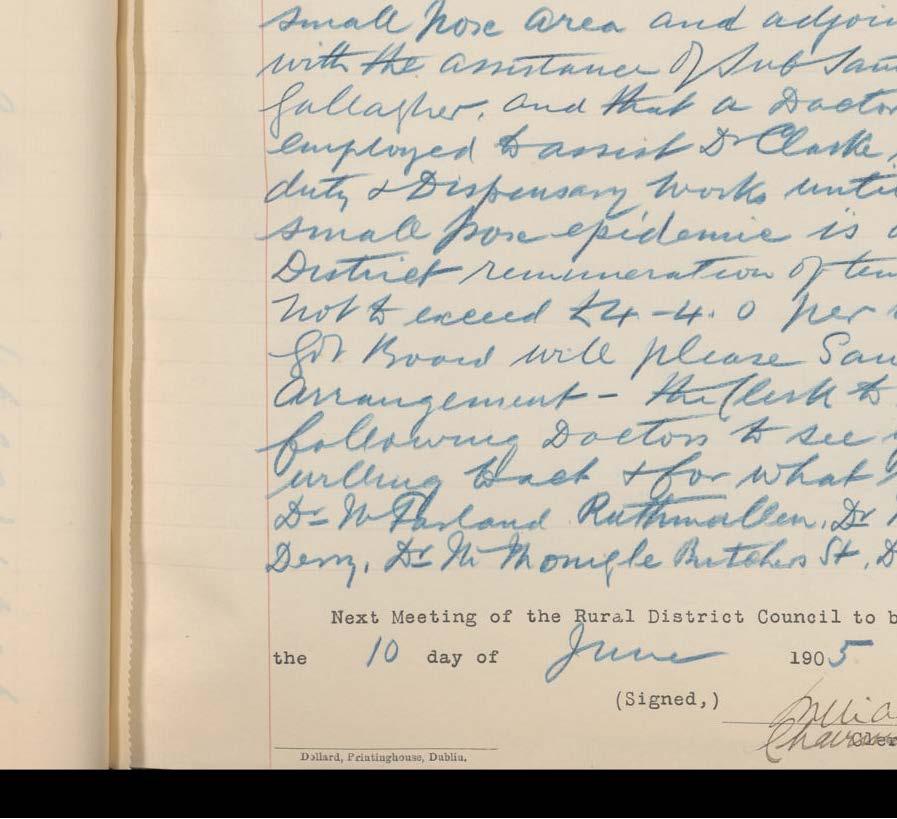 small Pose area and adjoi
with the assistance of Sub San
Gallagher, and that a Doctor
employed to assist Dr Clarke
duty & Dispensary works unti
small pose epidemic is
District remuneration of ten
not to exceed £4-4.0 per
Board will please San
Arrangement - the Clerk to
following Doctors to see
willing to act & for what
Dr McFarland Rathmullen, Dr
Derry, Dr McMonigle Butchers St, D
Next Meeting of the Rural District Council to b
the 10 day of June 1905
(Signed,)
Willia
Chair
Dollard, Printinghouse, Dublin.